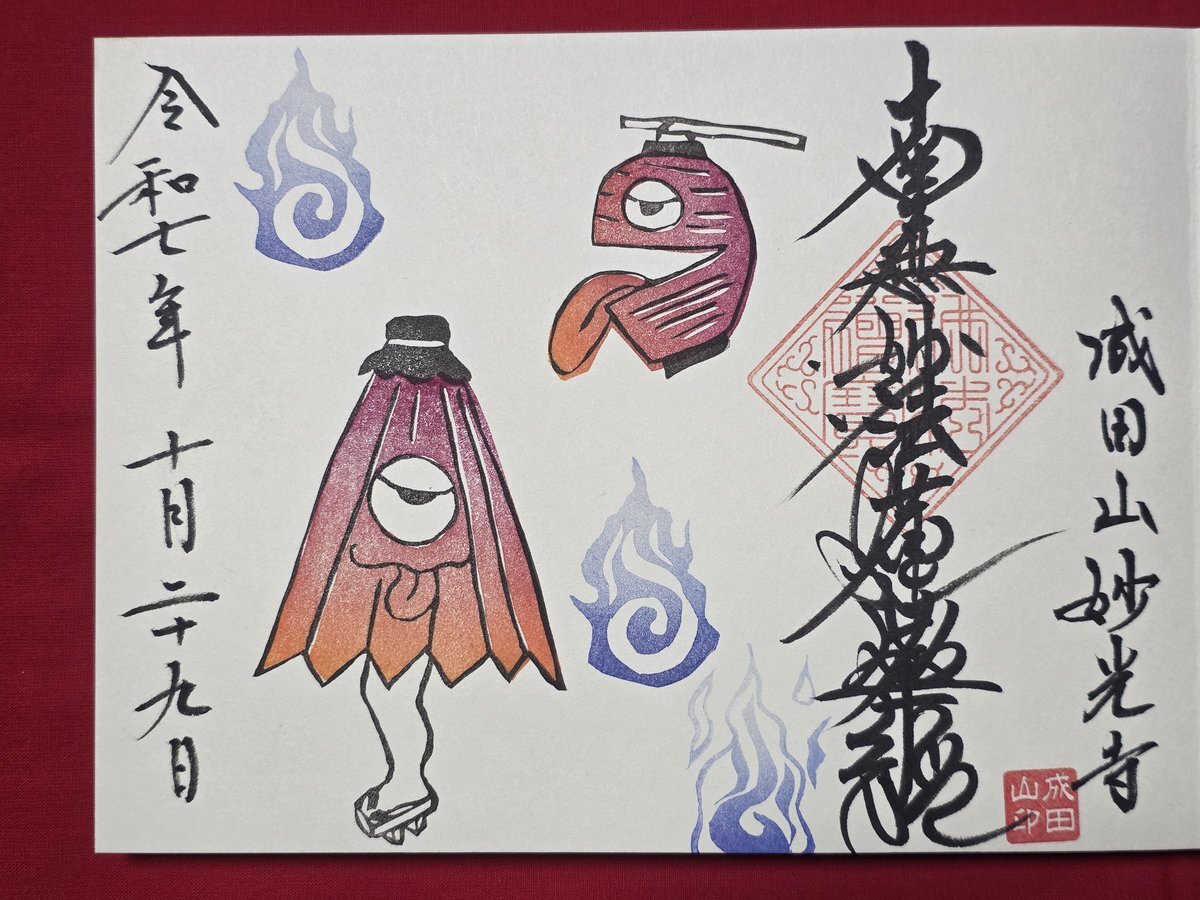 成田山妙光寺
南無妙法蓮華經
令和七年 十月二十九日
成田
山印